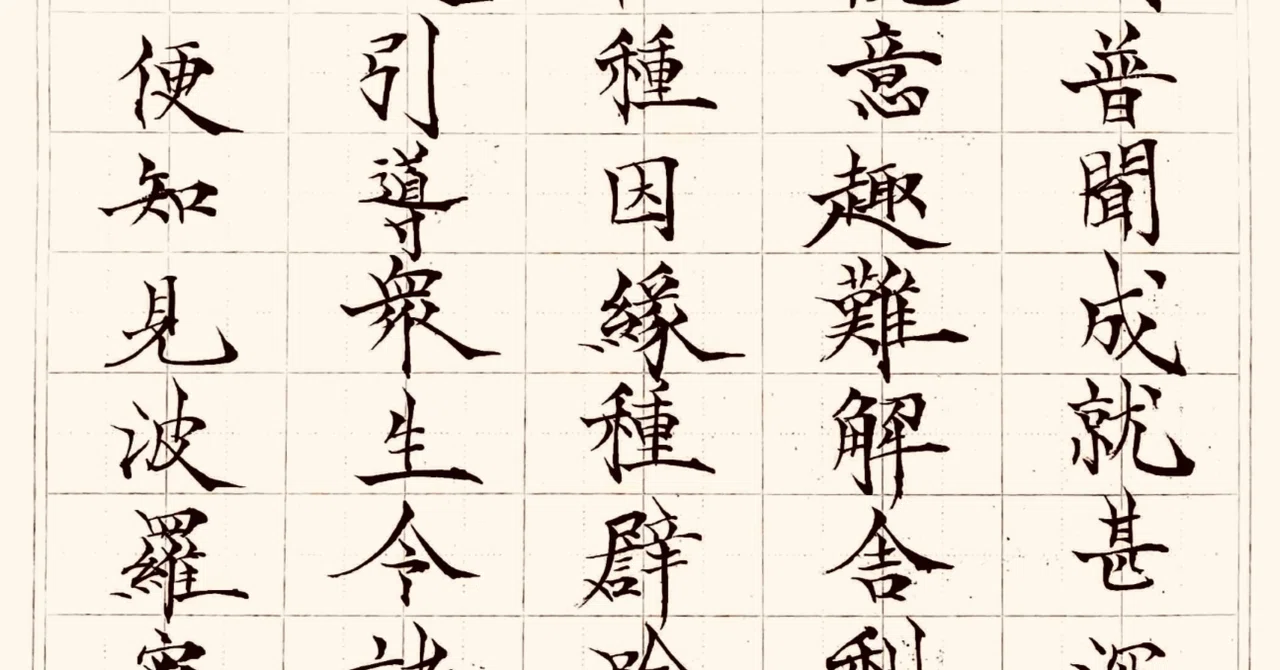 普聞成就甚深
意趣難解舍利
種因緣種辟
引導衆生令
便知見波羅